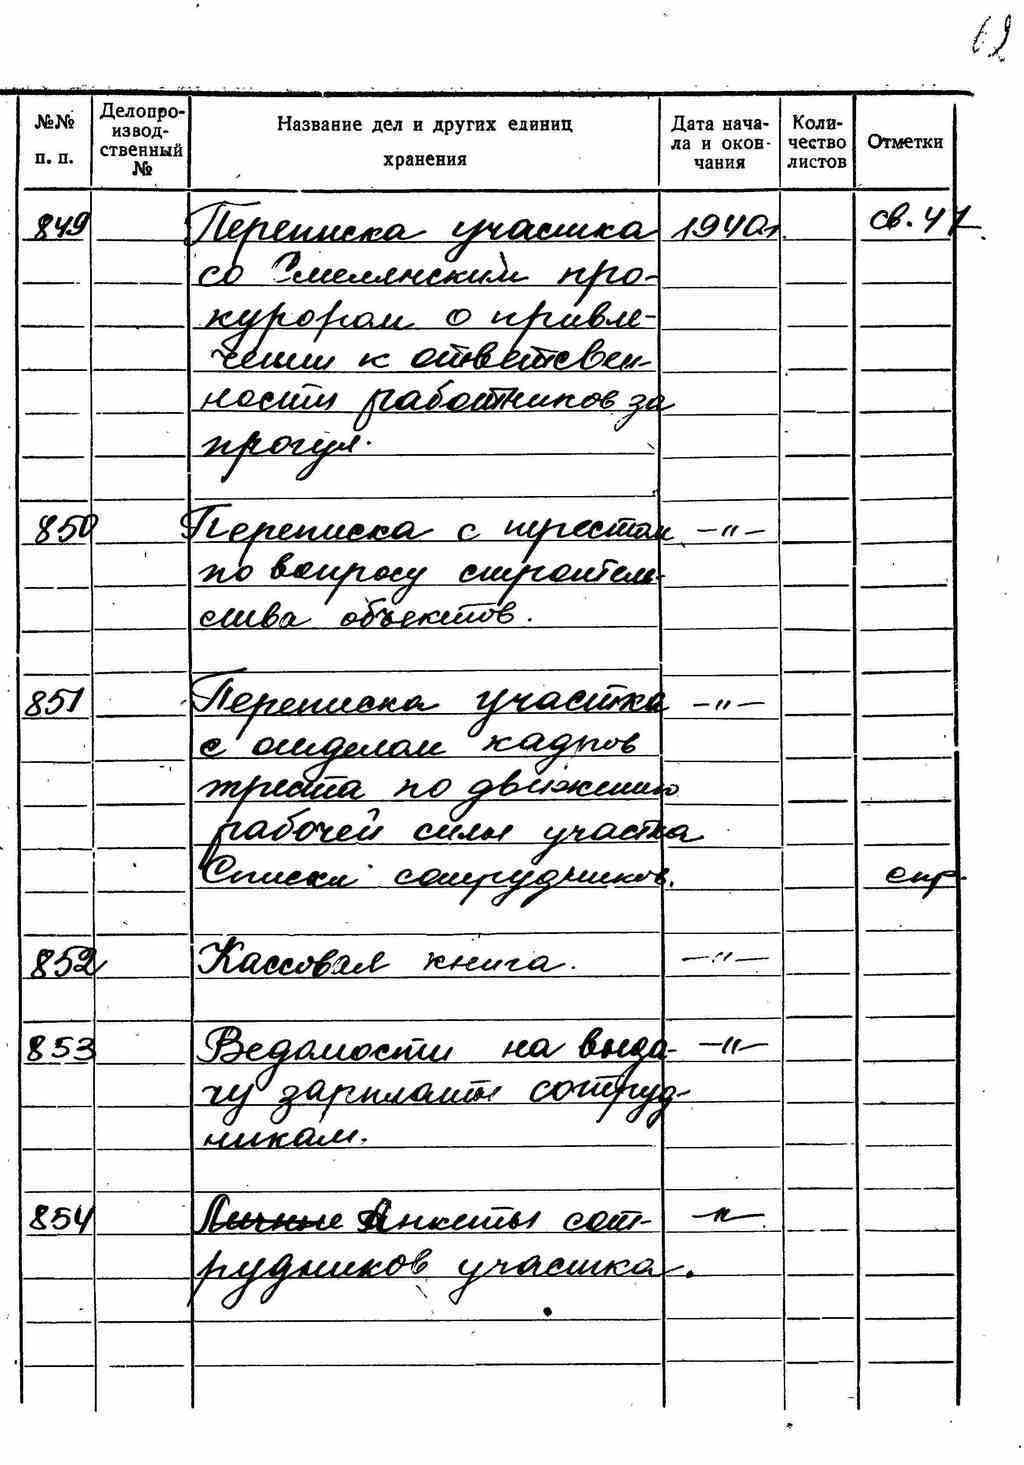 62
№№ п. п. Делопро-извод-ственный № Название дел и других единиц хранения Дата нача-ла и окон-чания Коли-чество листов Отметки
849 Переписка участка 1940г. св. 41
со Смелянским про-
курором о привле-
чении к ответствен-
ности работников за
прогул.
850 Переписка с трестом —"—
по вопросу строитель-
ства объектов.
851 Переписка участка —"—
с отделом кадров
треста по движению
рабочей силы участка
Списки сотрудников. спр.
852 Кассовая книга. —"—
853 Ведомости на выда- —"—
чу зарплаты сотруд-
никам.
854 Личные Анкеты сот- —"—
рудников участка.